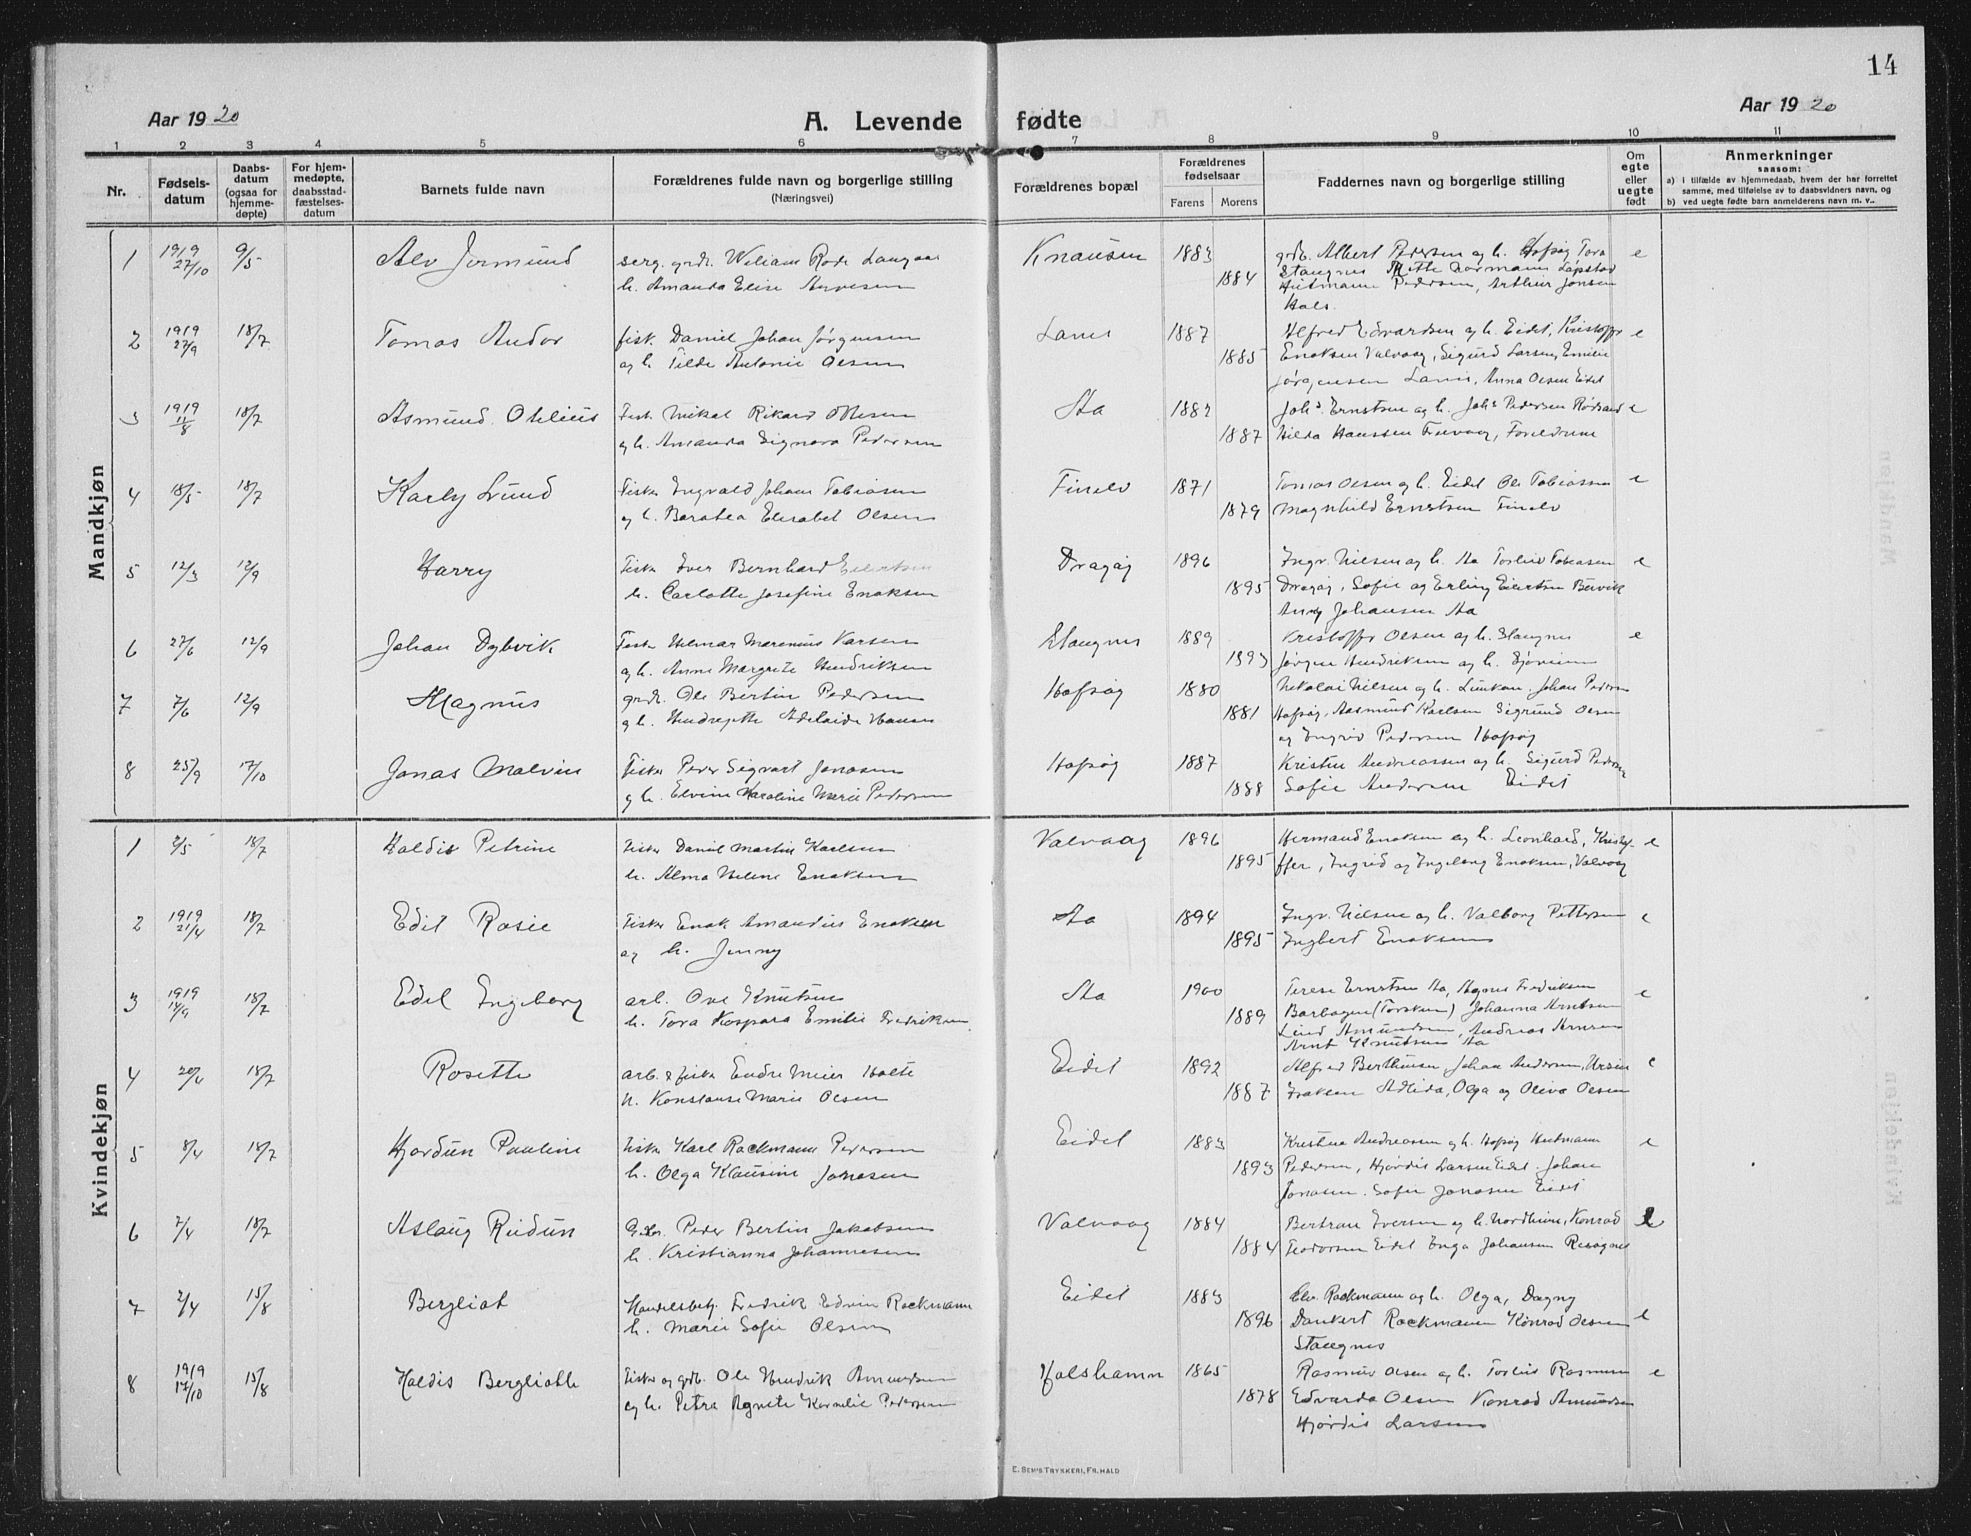 14
Aar 1920
A. Levende fødte
Aar 1920
1 2 3 4 5 6 7 8 9 10 11
Nr.
Fødsels-datum
Daabs-datum (ogsaa for hjemme-døpte)
For hjem-medøpte, daabsstad-fæstelses-datum
Barnets fulde navn
Forældrenes fulde navn og borgerlige stilling
(Næringsvei)
Forældrenes bopæl
Forældrenes fødselsaar
Farens Morens
Faddernes navn og borgerlige stilling
Om egte eller uegte født
Anmerkninger
saasom:
a) i tilfælde av hjemmedaab, hvem der har forrettet samme, med tilføielse av to daabsvidners navn, og
b) ved uegte fødte barn anmelderens navn m. v..
Mandkjøn
1 1919 27/10 9/5 Alv Jormund Wiliam Rode Langaas Knausen 1883 grdb. Albert Pedersen og h. Hofsøy Tora e
h. Amanda Elise Arnesen 1884 Stangnes
Hutmann Pedersen, Arthur Jonsen
Hals.
2 1919 27/9 18/7 Tomas Andor fisk. Daniel Johan Jørgensen Lanes 1887 Alfred Edvardsen og h. Eidet, Kristoffr e
og h. Tilde Antonie Olsen 1885 Enoksen Valvaag, Sigurd Larsen, Emilie
Jørgensen Lanes, Anna Olsen Eidet
3 1919 18/7 Asmund Othelius Fisk. Mikal Rikard Olsen Aa 1882 Johs. Ernstsen og h. Johs Pedersen Rødsand e
og h. Amanda Signora Pedersen 1887 Hilda Hanssen Trevaag, Foreldrene
4 18/5 18/7 Karly Lund Fisker Ingvald Johan Tobiasen Finelv 1871 Tomas Olsen og h. Eidet Ole Tobiassen e
og h. Barahea Elisabet Olsen 1879 Magnhild Ernstsen Finelv
5 12/3 12/9 Harry Fisker Iver Bernhard Eilertsen Dragøy 1896 Ingv. Nilsen og h. Aa Torleif Tobiasen e
h. Carlotte Josefine Enoksen 1895 Dragøy, Sofie og Erling Eilertsen Bervik
Anny Johansen Aa
6 27/6 12/9 Johan Dybvik Fisker Hilmar Marenius Karsen Stangnes 1889 Kristoffr Olsen og h. Stangnes e
og h. Anna Margrete Hendriksen 1893 Jørgen Hendriksen og h.
7 7/6 12/9 Magnus grdb. Ole Bertin Pedersen Hofsøy 1880 Nikolai Nilsen og h. Johan Pedersen
og h. Hendrejette Adelaide Hansen 1881 Hofsøy, Aasmund Karlsen Sigrund Olsen
og Ingrid Pedersen Hofsøy
8 25/9 17/10 Jonas Malvin fisker Peder Sigvart Jonasen Hofsøy 1887 Kristin Andreassen og h. Sigurd Pedersen
og h. Elvine Karoline Marie Pedersen 1888 Sofie Andersen Eidet
Kvindekjøn
1 3/5 18/7 Haldis Petrine Fisker Daniel Martin Karlsen Valvaag 1896 Hermand Enoksen og h. Leonhard, Kristof- e
h. Alma Helene Enoksen 1895 ffer, Ingrid og Ingeborg Enoksen, Valvaag
2 1919 21/4 18/7 Edit Rosie Fisker Enok Amandus Enoksen Aa 1894 Ingv. Nilsen og h. Valborg Pettersen e
og h. Jenny 1895 Ingbert Enoksen
3 1919 14/9 18/7 Edel Ingeborg arb. Ove Knutsen Aa 1900 Terese Ernstsen Aa, Agnes Fredriksen e
h. Tora Kospara Emilie Fredriksen 1889 Barbogen (Torsken) Johanna Arntsen
Amundsen, Andreas Arnsen
Arnt Knutsen Aa
4 20/4 18/7 Rosette arb. & fisker Endre Meier Holte Eidet 1892 Alfred Berthinsen Johan Andersen, Ursin e
h. Konstanse Marie Olsen 1887 Isaksen Adlida, Olga og Oliva Olsen
5 8/4 18/7 Hjordun Pauline Fisker Karl Rockmann Pedersen Eidet 1883 Kristine Andreassen og h. Hofsøy Hutmann e
h. Olga Klausine Jonasen 1893 Pedersen, Hjørdis Larsen Eidet. Johan
Jonasen. Sofie Jonasen Eidet
6 7/4 18/7 Aslaug Reidun Peder Bertin Jakobsen Valvaag 1884 Bertran Iversen og h. Nordheim, Konrad e
h. Kristianna Johannesen 1884 Teodorsen Eidet Inga Johansen
7 2/4 15/8 Bergliot Handelsbetj. Fredrik Edvin Rockmann Eidet 1883 Rockmann og h. Olga, Dagny
h. Marie Sofie Olsen 1896 Dankert Rockmann Konrad Olsen e
Stangnes
8 1919 17/10 15/8 Haldis Bergliotte Fisker og grdb. Ole Hendrik Amundsen Halshamn 1865 Rasmus Olsen og h. Torleif Rasmusen e
og h. Petra Agnete Kornelie Pedersen 1878 Edvarda Olsen Konrad Amundsen
Hjørdis Larsen
E. Sem's Trykkeri, Fr.hald